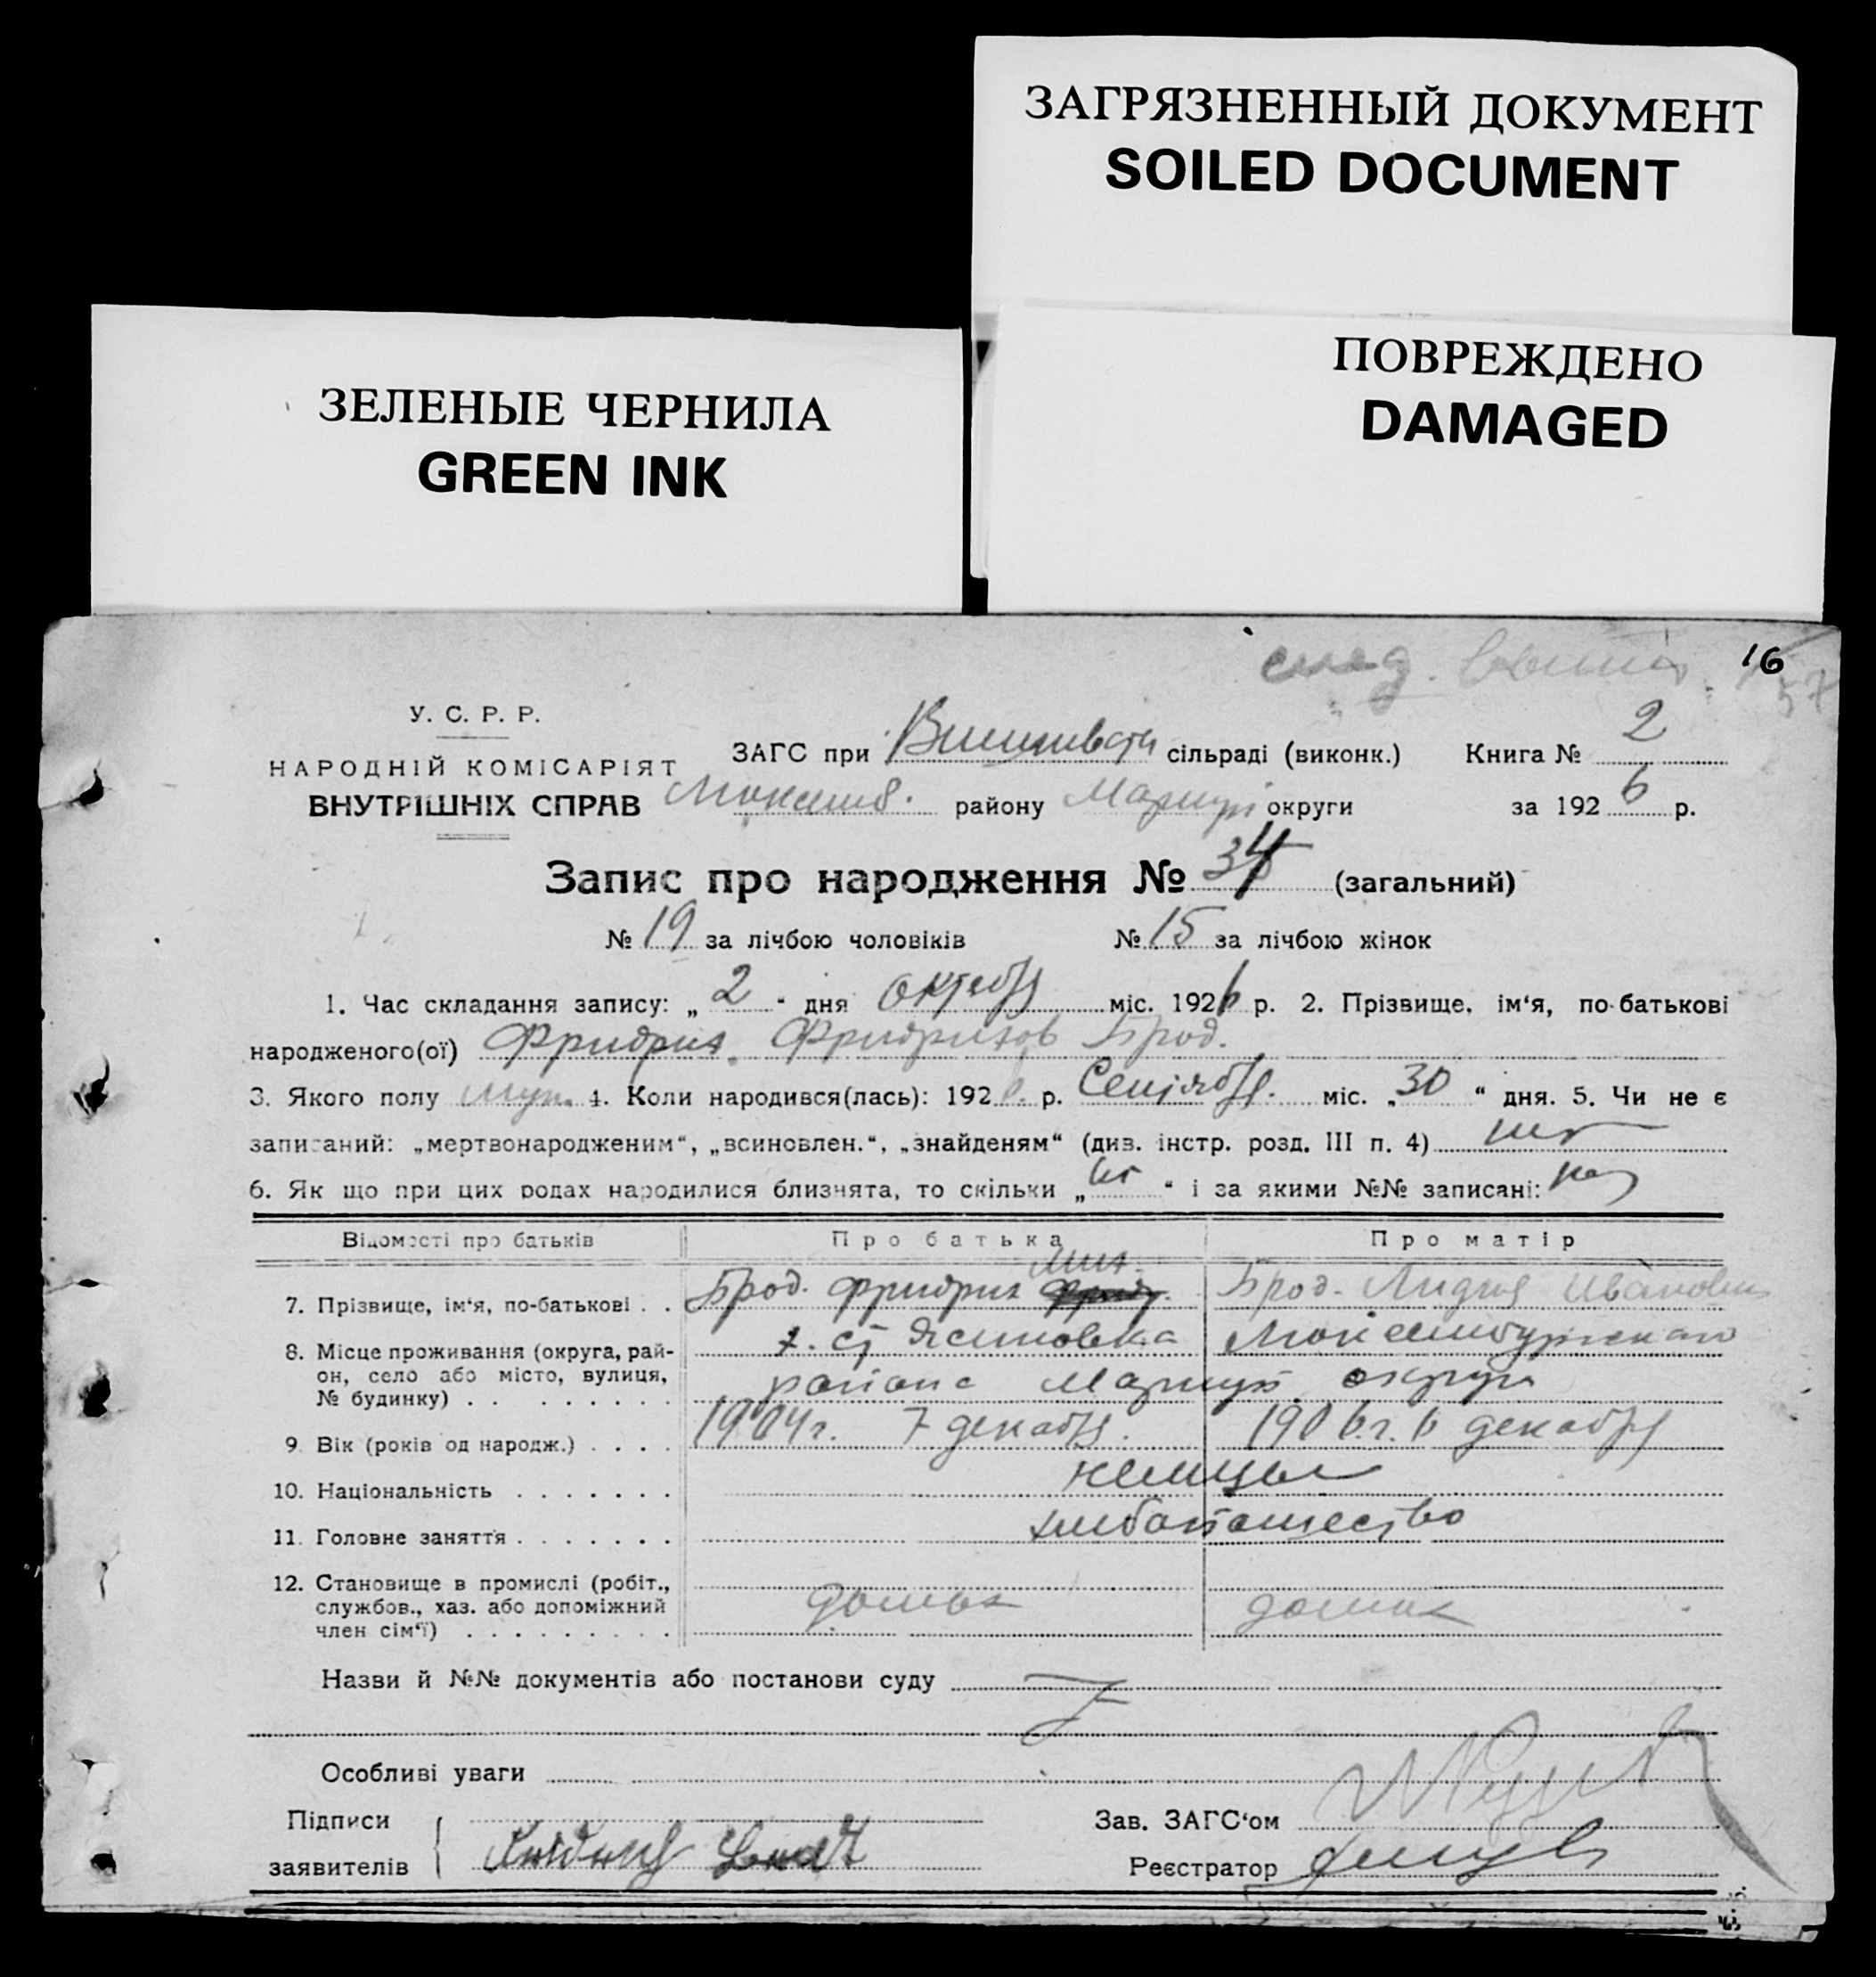 ЗАГРЯЗНЕННЫЙ ДОКУМЕНТ
SOILED DOCUMENT
ПОВРЕЖДЕНО
DAMAGED
ЗЕЛЕНЫЕ ЧЕРНИЛА
GREEN INK
след. 16
57
У. С. Р. Р.
НАРОДНІЙ КОМІСАРІЯТ
ВНУТРІШНІХ СПРАВ
ЗАГС при сільраді (виконк.) Книга № 2
району Мариуп округи за 1926 р.
Запис про народження № 34 (загальний)
№ 19 за лічбою чоловіків № 15 за лічбою жінок
1. Час складання запису: „2“ дня Октября міс. 1926 р. 2. Прізвище, ім‘я, по-батькові
народженого(ої) Фридрих Фридрихов Брод.
3. Якого полу муж. 4. Коли народився(лась): 1926 р. Сентября міс. „30“ дня. 5. Чи не є
записаний: „мертвонародженим“, „всиновлен.“, „знайденям“ (див. інстр. розд. III п. 4) нет
6. Як що при цих родах народилися близнята, то скільки „нет“ і за якими №№ записані: нет
Відомості про батьків Про батька Про матір
7. Прізвище, ім‘я, по-батькові . . Брод. Фридрих Мих. Брод. Лидия Ивановна
8. Місце проживання (округа, рай-
он, село або місто, вулиця,
№ будинку) . . . . . . . . .
х. ст Ясиновка
района Мариуп округа
9. Вік (років од народж.) . . . . 1904 г. 7 декабря. 1906 г. 6 декабря
10. Національність . . . . . . . немцы
11. Головне заняття . . . . . . . хлебопашество
12. Становище в промислі (робіт.,
службов., хаз. або допоміжний
член сім‘ї) . . . . . . . . .
Назви й №№ документів або постанови суду
Особливі уваги
Підписи
заявителів
Зав. ЗАГС‘ом
Реєстратор